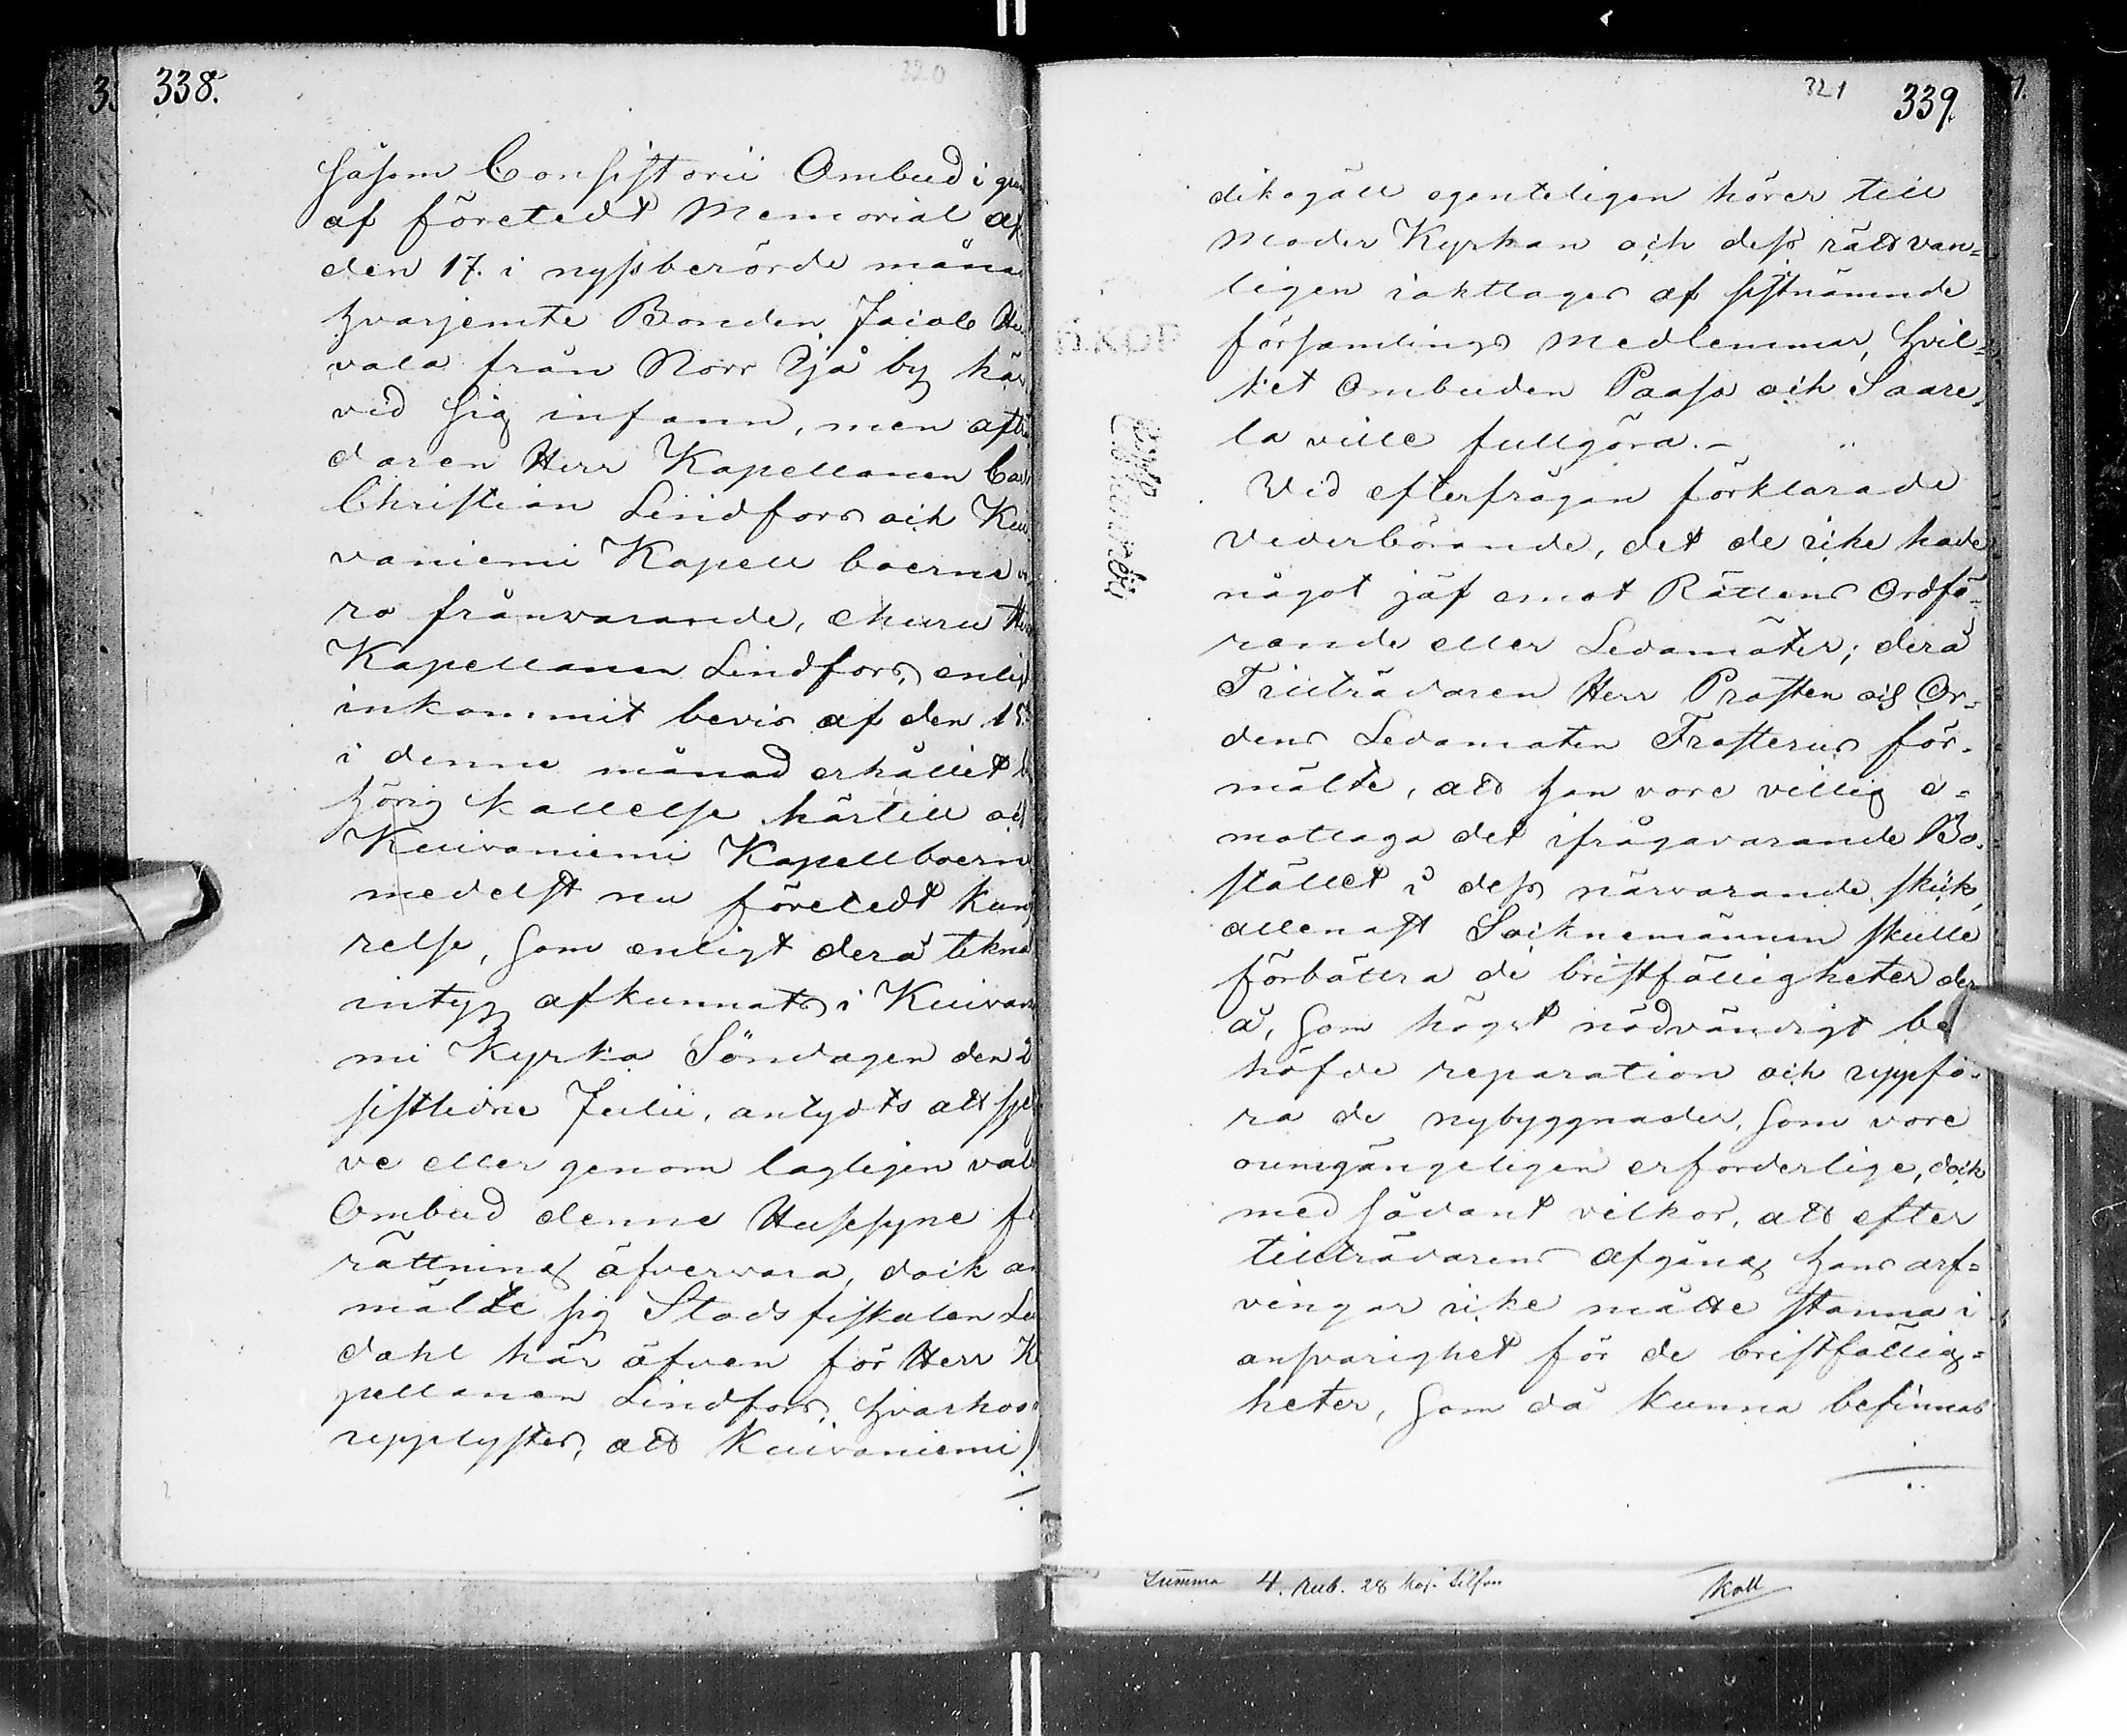 338.
320
såsom Consistorii Ombud i
af företedt Memorial af
den 17. i nyssberörde måna
hvarjemte Bonden Jacob
vala från Norr Ijå by hä
vid sig infann, men afträ
daren Herr Kapellanen
Christian Lindfors och Kui
vaniemi Kapell boerne
ro frånvarande, ehuru Herr
Kapellanen Lindfors, enligt
inkommit bevis af den 15
i denne månad erhållit be
hörig kallelse härtill och
Kuivaniemi Kapellboern
medelst nu företedt kung
relse, som enligt derå tekna
intyg afkunnats i Kuivanie
mi Kyrka Söndagen den 2
sistledne Julii, antydts att sjelf
ve eller genom lagligen vald
Ombud denne Hussyne fö
rättning äfvervara, dock an
mälte sig Stadsfiskalen
dahl här äfven för Herr Ka
pellanen Lindfors, hvarhos
upplystes, att Kuivaniemi
321
339.
dikogäll egenteligen hörer till
Moder Kyrkan och dess rätt van=
ligen iakttages af sistnämnde
församlings medlemmar, hvil=
ket Ombuden Paaso och Saare=
la ville fullgöra.-
Vid efterfrågan förklarade
vederbörande, det de icke hade
något jäf emot Rättens Ordfö=
rande eller Ledamöter; derå
Tillträdaren Herr Prosten och Or=
dens Ledamoten Frosterus för=
mälte, att han vore villig e=
mottaga det ifrågavarande Bo=
stället i dess närvarande skick,
allenast Socknemännen skulle
förbättra de bristfälligheter der
å, som högst nödvändigt be
höfde reparation och uppfö=
ra de nybyggnader, som vore
oumgängeligen erforderlige, dock
med sådant vilkor, att efter
tillträdarens afgång hans arf=
vingar icke måtte stanna i
ansvarighet för de bristfällig=
heter, som då kunna befinnas
Summa 4. Rub. 28 kop. Silfver
Koll